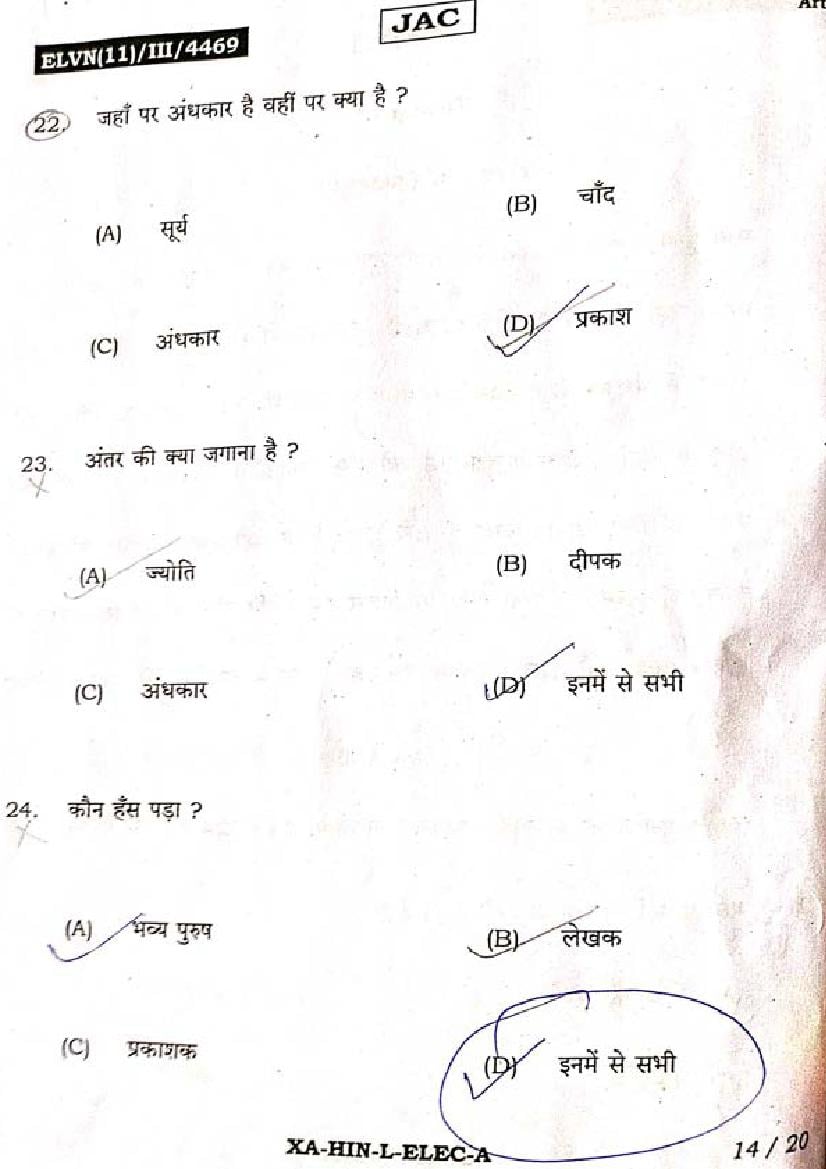 Art
JAC
ELVN(11)/III/4469
22. जहाँ पर अंधकार है वहीं पर क्या है ?
(A) सूर्य
(B) चाँद
(C) अंधकार
(D) प्रकाश
23. अंतर की क्या जगाना है ?
(A) ज्योति
(B) दीपक
(C) अंधकार
(D) इनमें से सभी
24. कौन हँस पड़ा ?
(A) भव्य पुरुष
(B) लेखक
(C) प्रकाशक
(D) इनमें से सभी
XA-HIN-L-ELEC-A
14 / 20